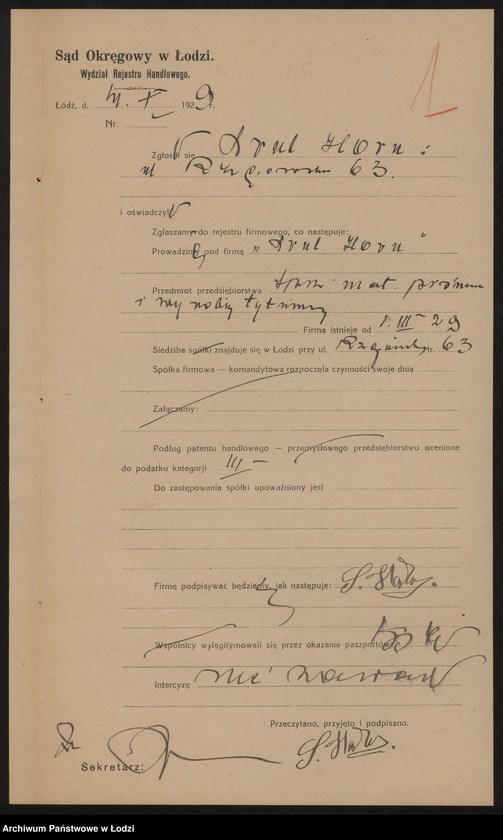 Sąd Okręgowy w Łodzi.
Wydział Rejestru Handlowego.
1
Łódź, d. X 1929 r.
Nr.
Zgłosił się Srul Horn:
ul 63.
i oświadczył
Zgłaszamy do rejestru firmowego, co następuje:
Prowadzimy pod firmą „Srul Horn"
Przedmiot przedsiębiorstwa mat.
i tytuniu
Firma istnieje od 1. III - 29
Siedziba spółki znajduje się w Łodzi przy ul. Rzgowska nr. 63
Spółka firmowa — komandytowa rozpoczęła czynności swoje dnia
Załączamy:
Podług patentu handlowego — przemysłowego przedsiębiorstwo ocenione
do podatku kategorji III -
Do zastępowania spółki upoważniony jest
Firmę podpisywać będziemy, jak następuje:
Wspólnicy wylegitymowali się przez okazanie paszportów
Intercyzę nie zawarł
Przeczytano, przyjęto i podpisano.
Sekretarz:
Archiwum Państwowe w Łodzi